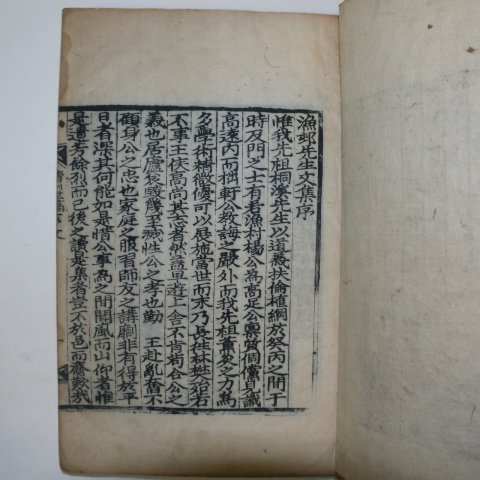 漁邨先生文集序
惟我先祖桐溪先生以道義扶倫植綱於癸丙之間于
時及門之士有若漁村楊公為高足公稟質個儻見識
高邁內而楓軒公敎誨之嚴外而我先祖薰炙之力為
多學術精微優可以展施當世而末乃長往林樊治若
不事王侯高尚其志者然蓋早遊上舍不肯苟合公之
義也居廬象幾至滅性公之孝也勤王赴亂奮不
顧身公之忠也家庭之服習師友之講劘非有得於平
日者深其何能如是惜公享為之間聞風而山仰者惟
是遺考餘烈而已後之讀是集者豈不於邑而齎歎哉